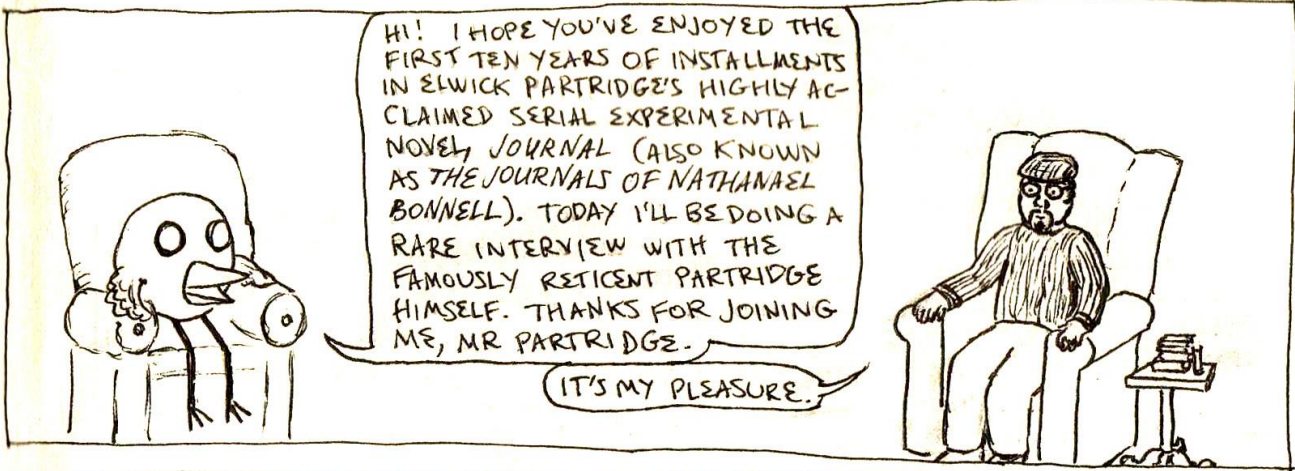 HI! I HOPE YOU'VE ENJOYED THE
FIRST TEN YEARS OF INSTALLMENTS
IN ELWICK PARTRIDGE'S HIGHLY AC-
CLAIMED SERIAL EXPERIMENTAL
NOVEL, JOURNAL (ALSO KNOWN
AS THE JOURNALS OF NATHANAEL
BONNELL). TODAY I'LL BE DOING A
RARE INTERVIEW WITH THE
FAMOUSLY RETICENT PARTRIDGE
HIMSELF. THANKS FOR JOINING
ME, MR PARTRIDGE.
IT'S MY PLEASURE.